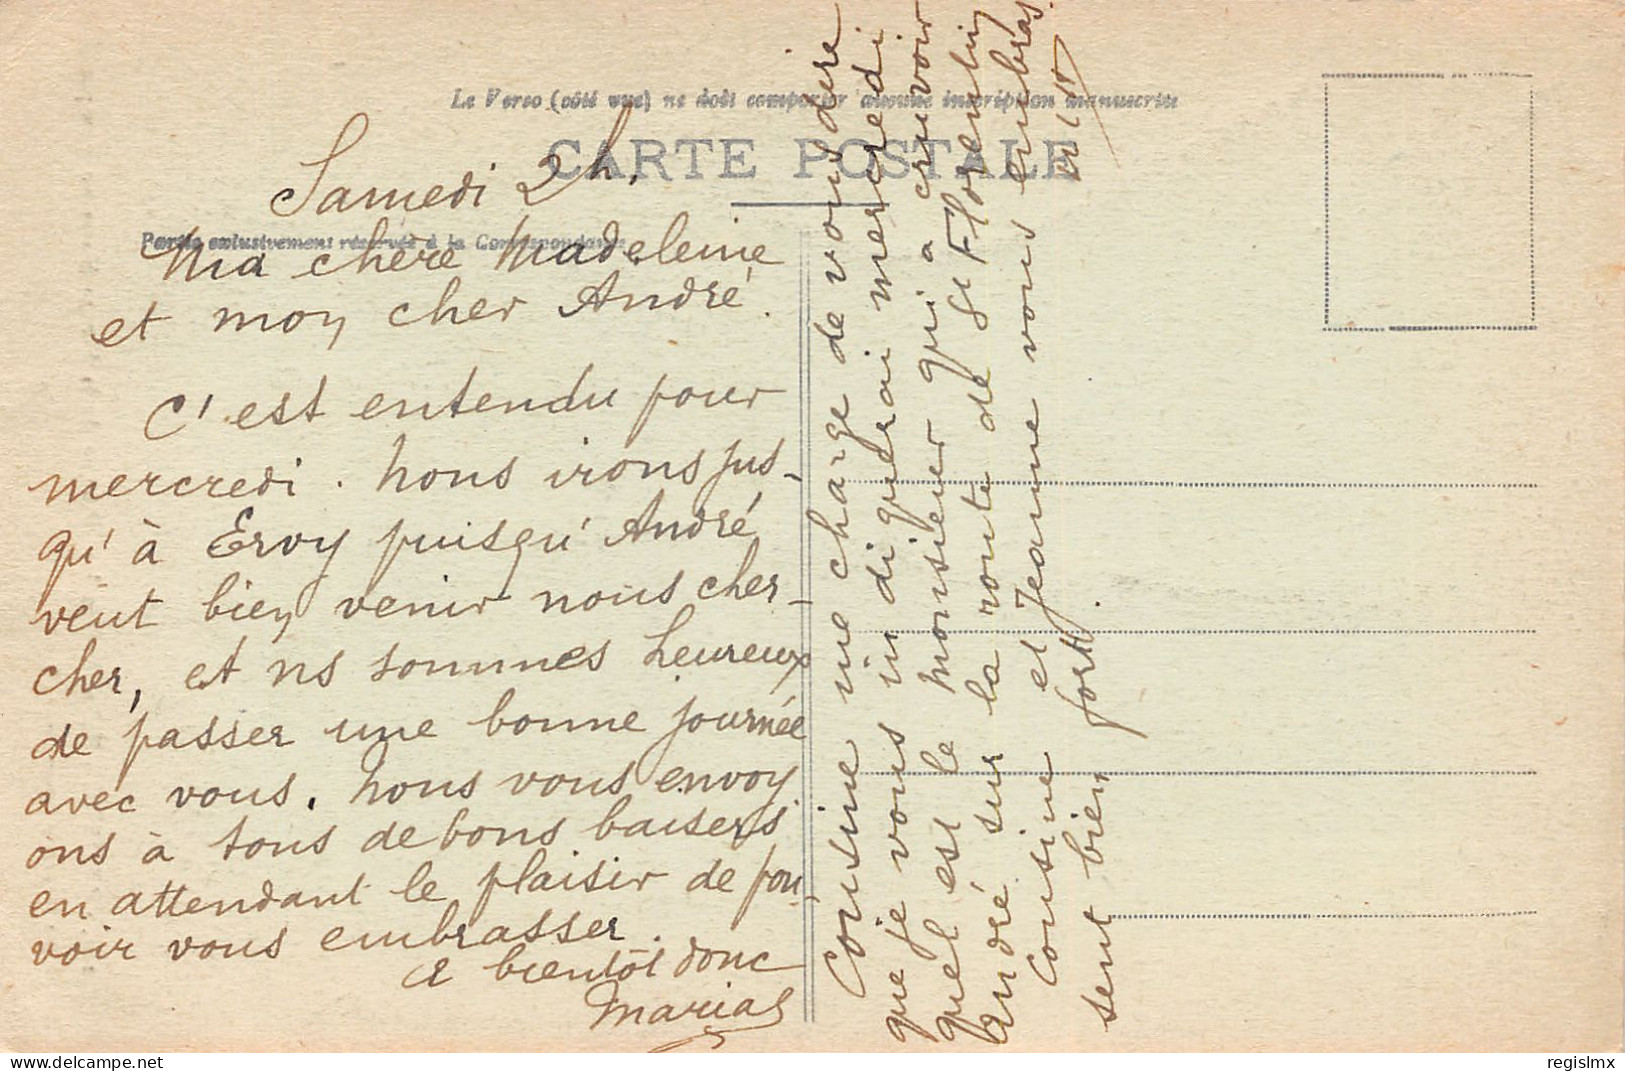 Le Verso (côté vue) ne doit comporter aucune inscription manuscrite
CARTE POSTALE
Partie exclusivement réservée à la Correspondance
Samedi 2 h.
Ma chère Madeleine
et mon cher André.
C'est entendu pour
mercredi. nous irons jus-
qu'à Ervy puisqu'André
veut bien venir nous cher-
cher, et ns sommes heureux
de passer une bonne journée
avec vous. nous vous envoy
ons à tous de bons baisers
en attendant le plaisir de pou-
voir vous embrasser.
A bientôt donc
Maria
Cousine me charge de vous dire
que je vous indiquerai mercredi
quel est le monsieur qui a cru voir
André sur la route de St Florentin
Cousine et Jeanne vous embras
sent bien fort.
regislmx